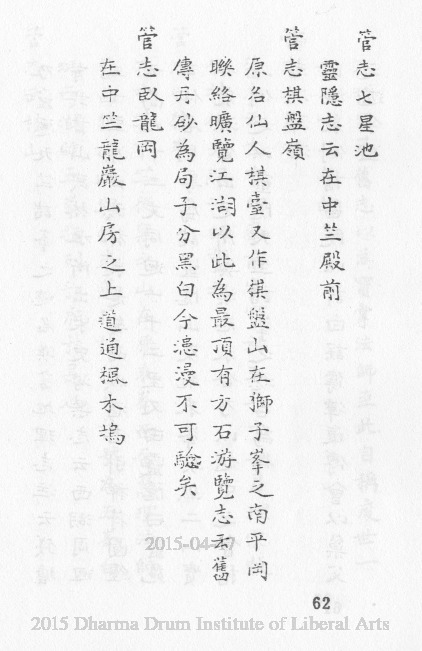 管志七星池
靈隱志云在中竺殿前
管志棋盤嶺
原名仙人棋臺又作棋盤山在獅子峯之南平岡
聯絡曠覽江湖以此為最頂有方石游覽志云舊
傳丹砂為局子分黑白今漶漫不可驗矣
管志臥龍岡
在中竺龍巖山房之上道通楓木塢
62
2015-04-27
2015 Dharma Drum Institute of Liberal Arts